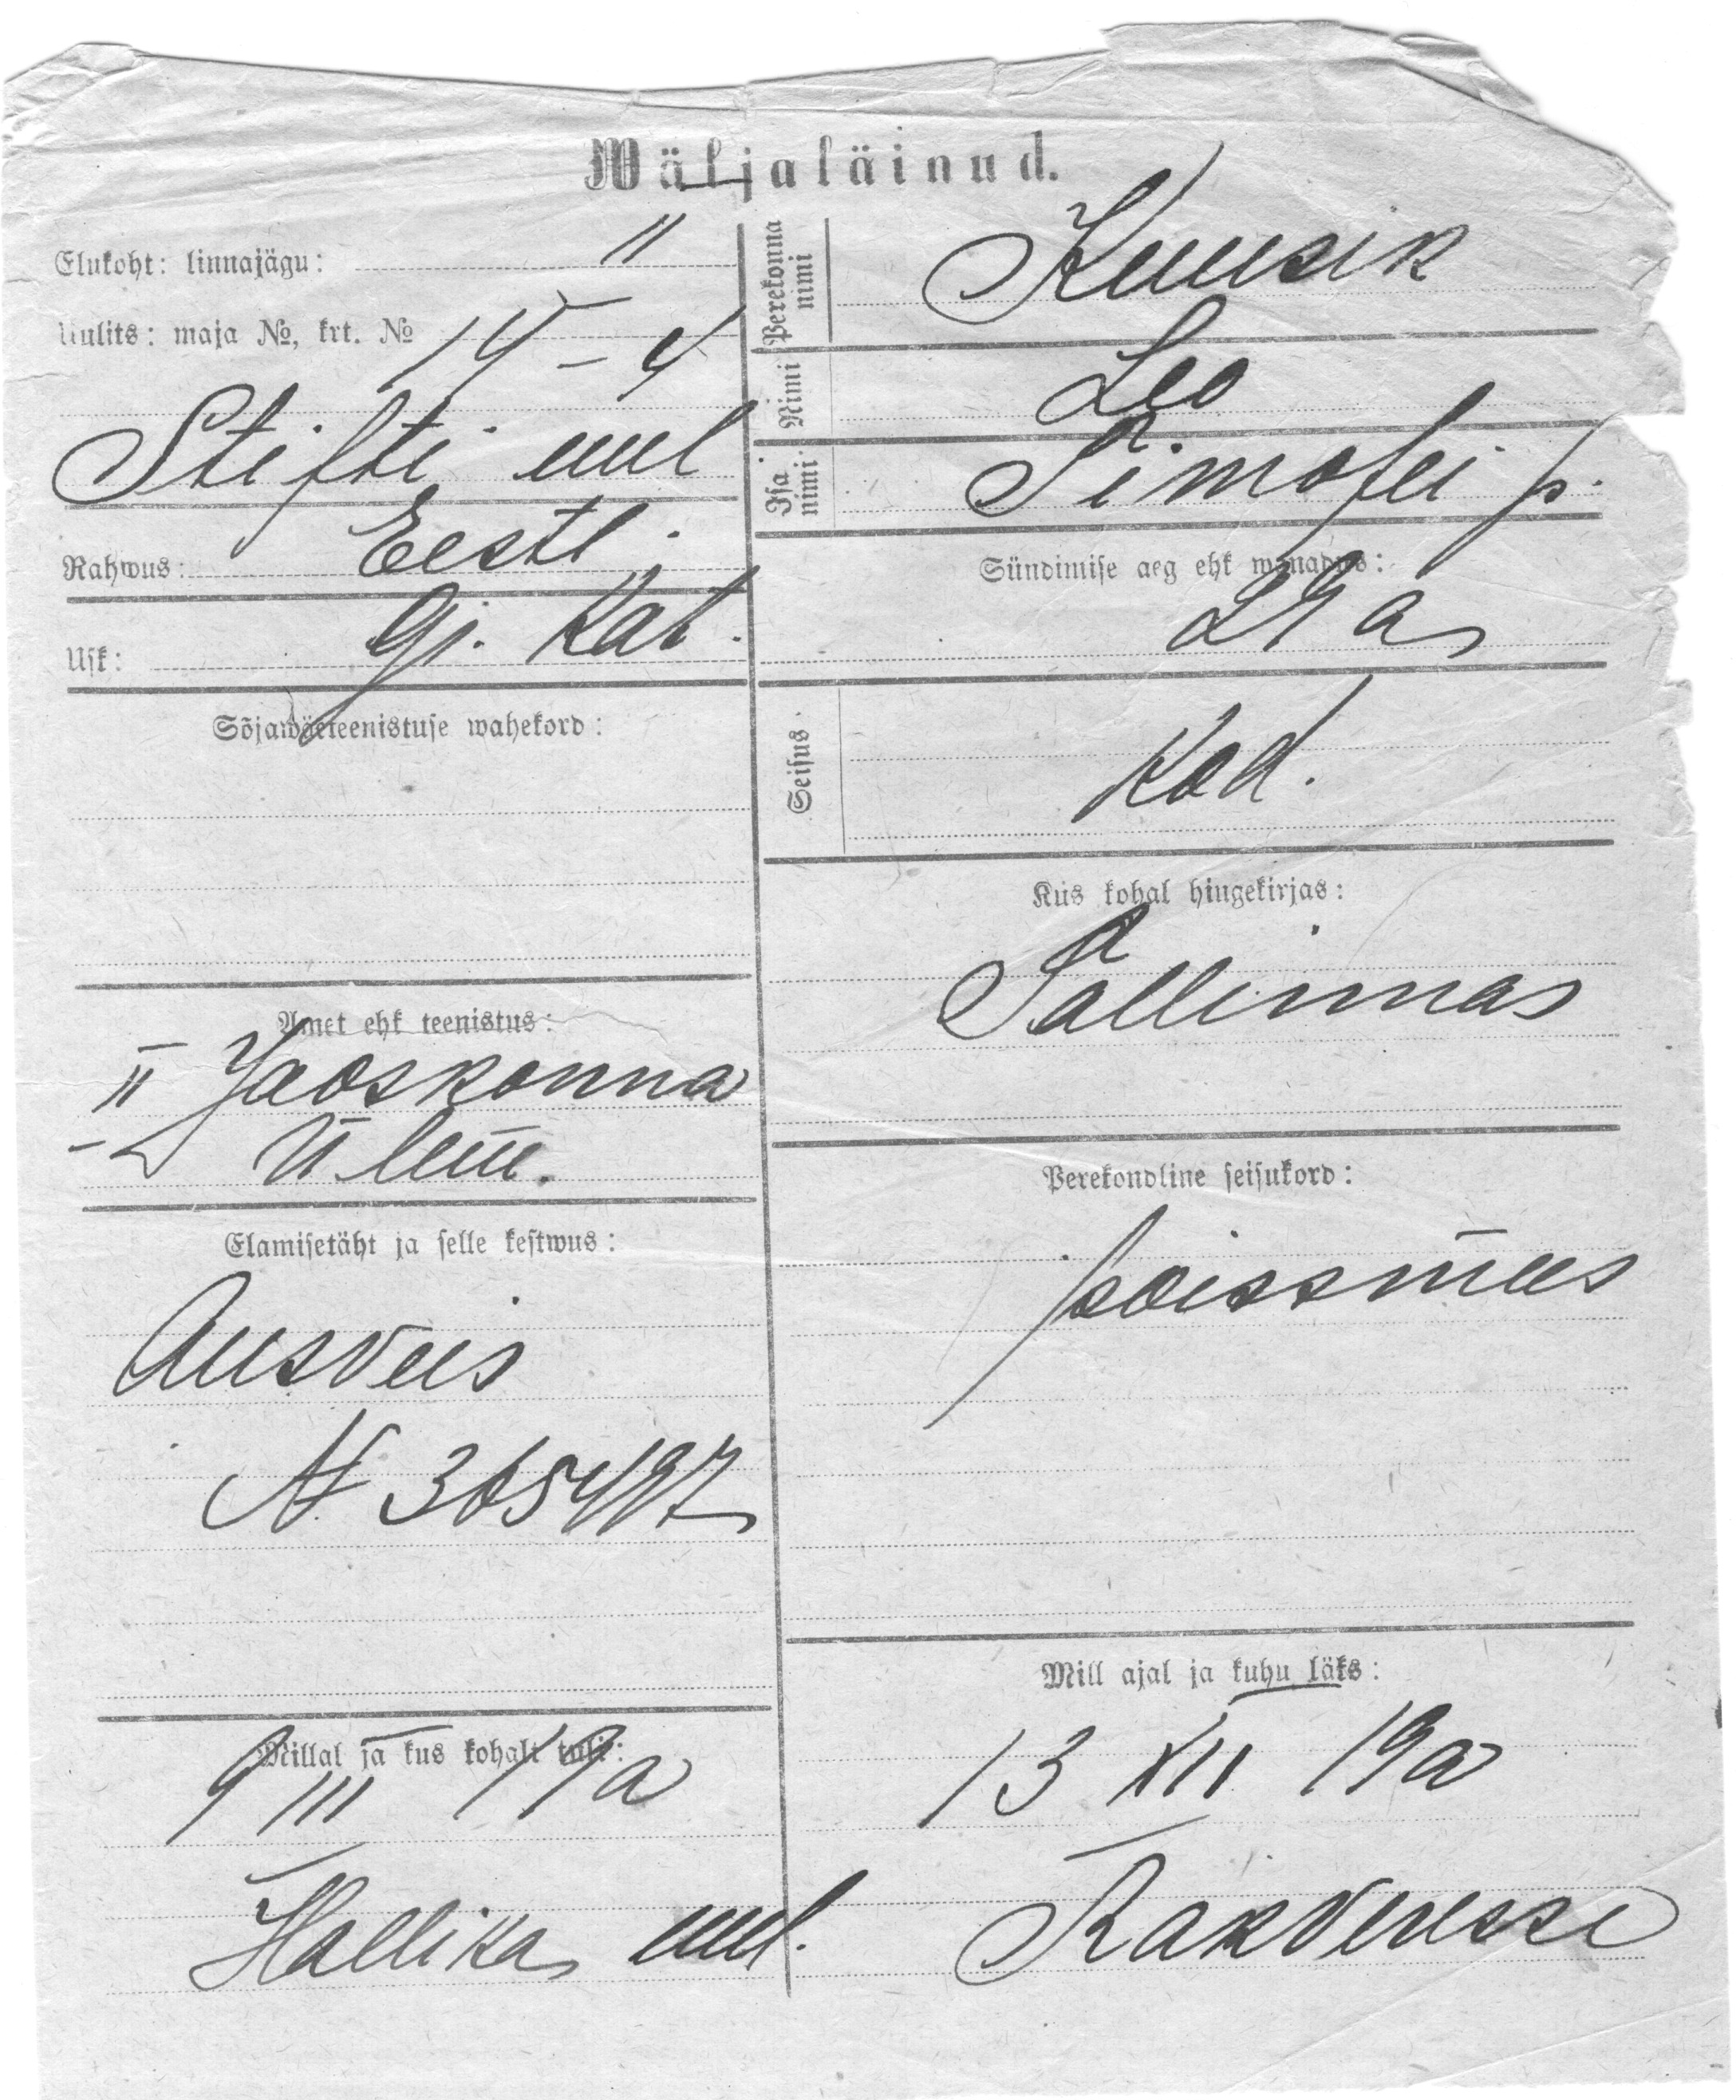 Wäljaläinud.
Elukoht: linnajägu: II
Uulits: maja №, krt. № 14 – 4
Stifti uul
Rahwus: Eestl.
Usk: Gj. Kat.
Sõjawäeteenistuse wahekord:
Amet ehk teenistus:
II Jaoskonna
Ülem.
Elamisetäht ja selle kestwus:
Ausveis
№ 365497
Millal ja kus kohalt tuli:
9 III 19 a
Hallika uul.
Perekonna nimi Kuusik
Nimi Leo
Isa nimi Timofei p.
Sündimise aeg ehk wanadus:
24 a
Seisus Kod.
Kus kohal hingekirjas:
Tallinnas
Perekondline seisukord:
poissmees
Mill ajal ja kuhu läks:
13 XII 19 a
Rakveresse